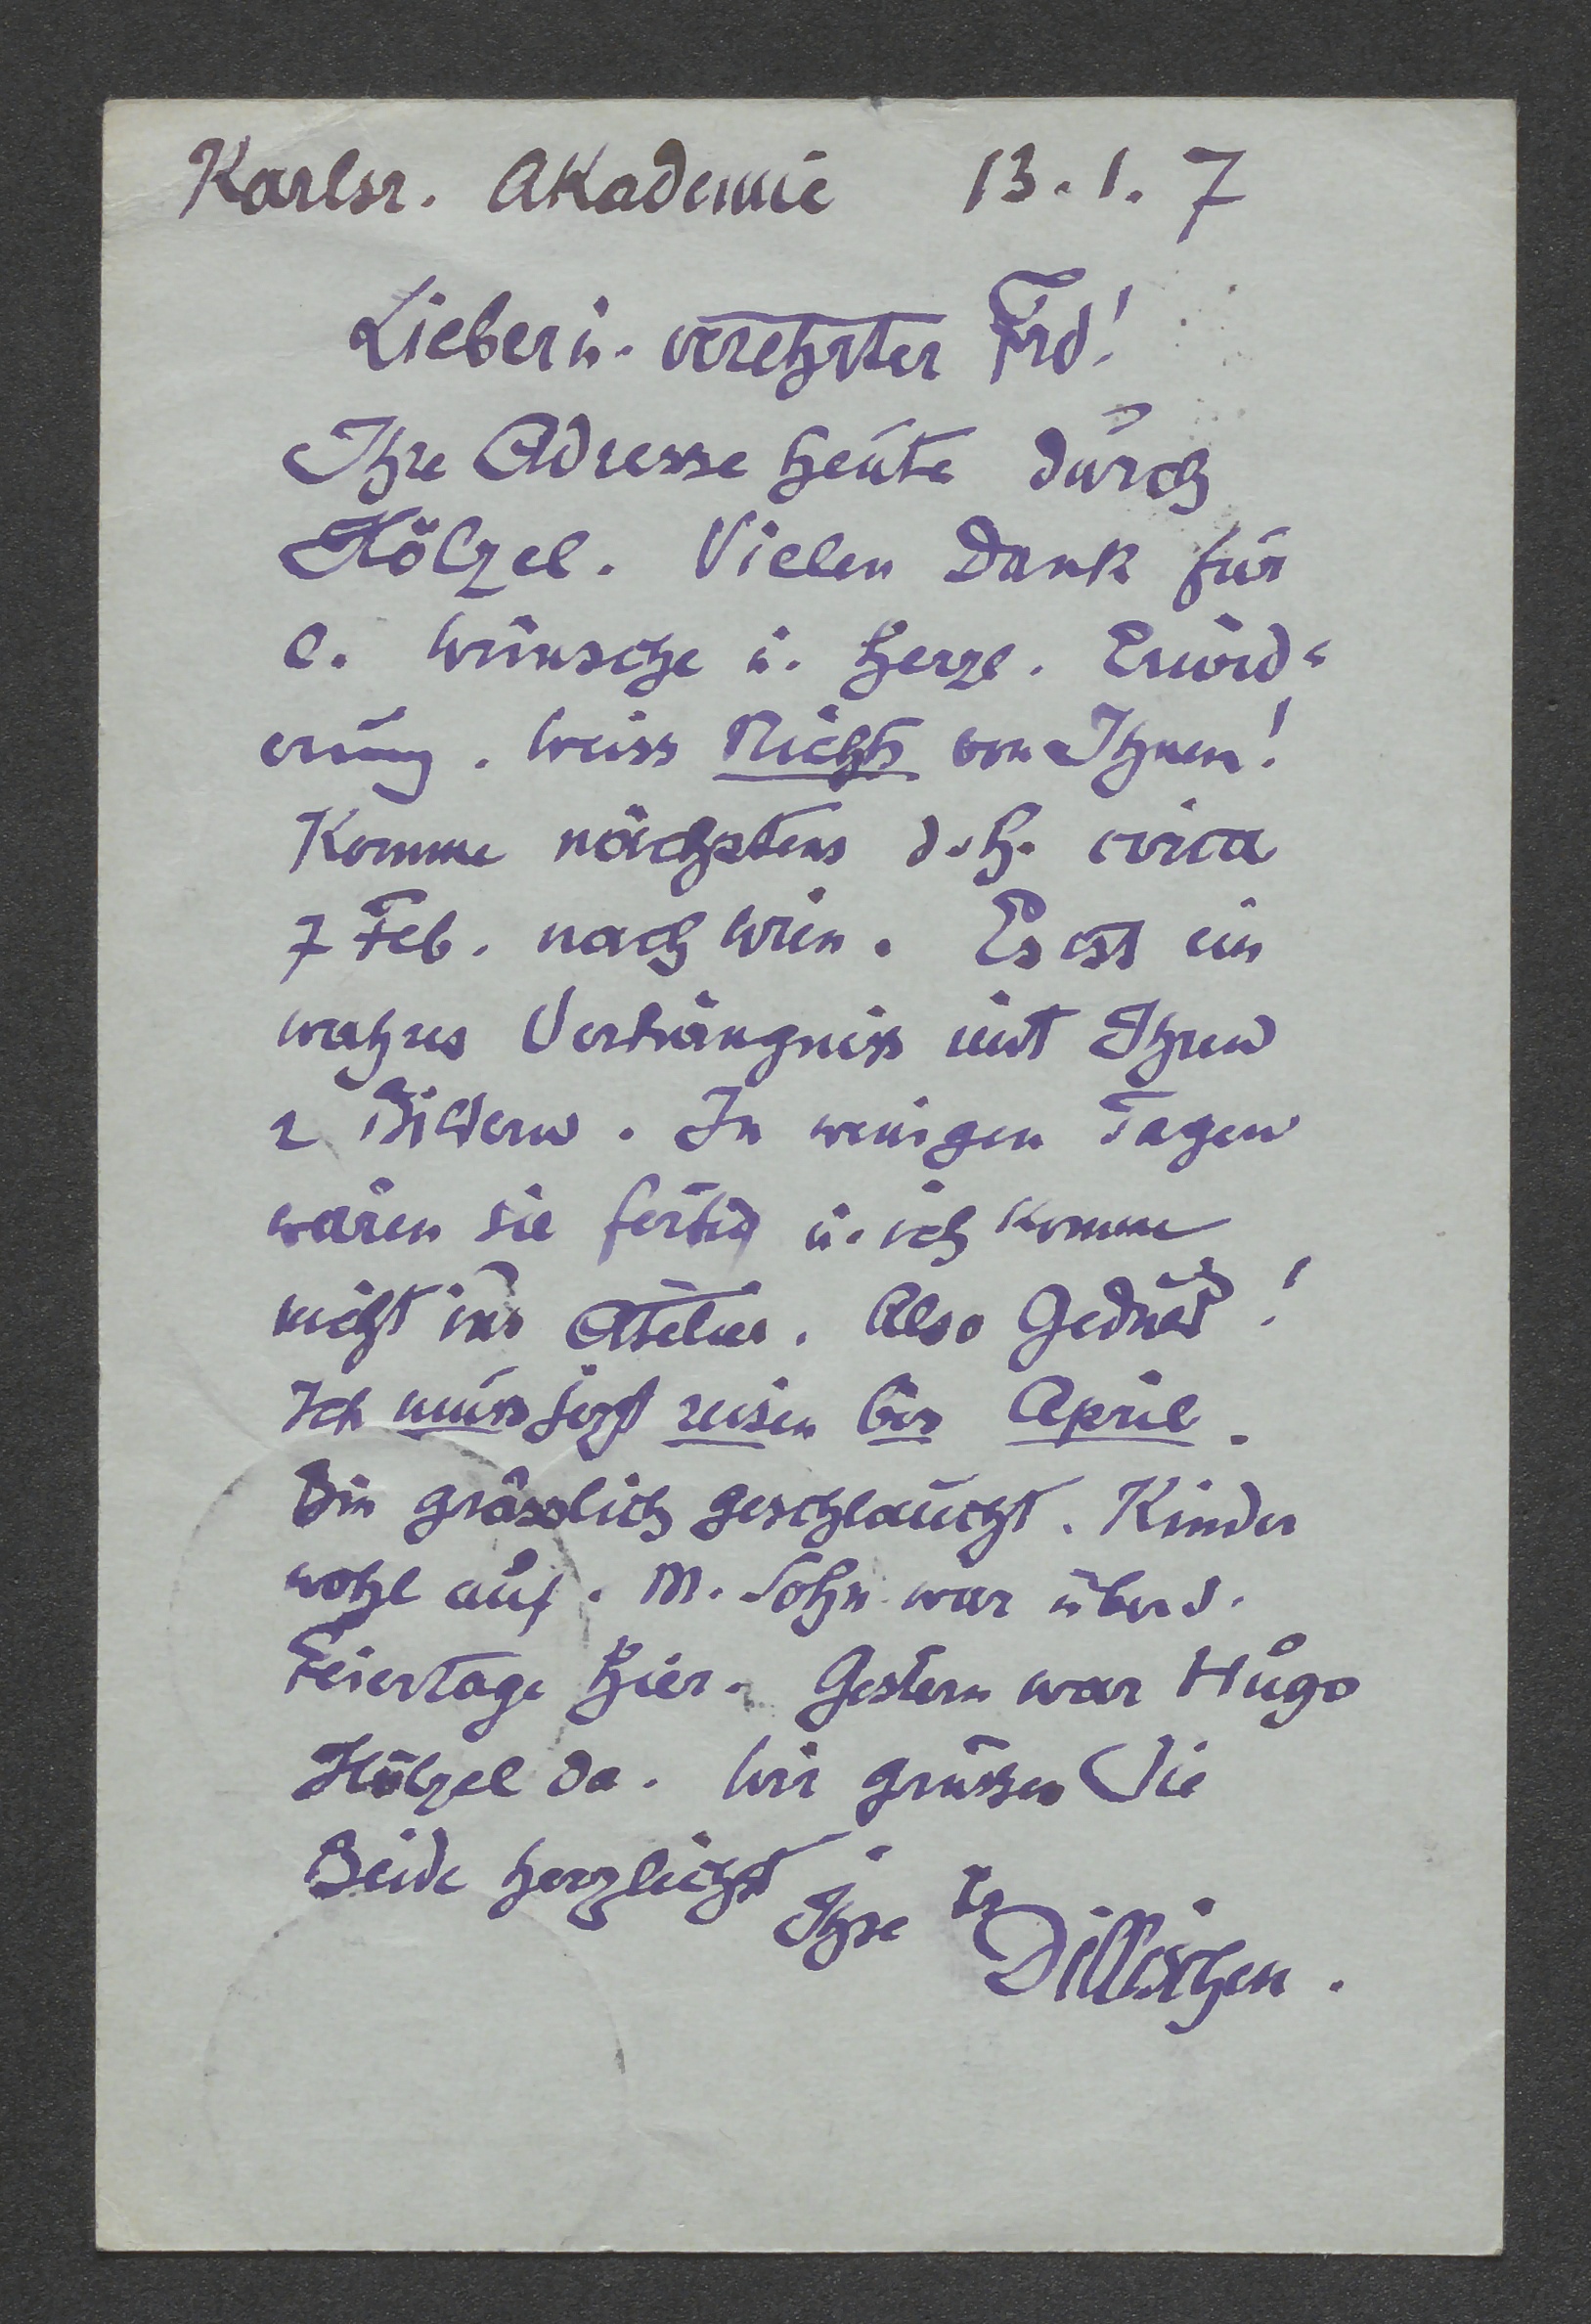 Karlsr. Akademie 13.1.7
Lieber u. verehrter Frd!
Ihre Adresse heute durch
Hölzel. Vielen Dank für
l. Wünsche u. herzl. Erwid-
erung. Weiss Nichts von Ihnen!
Komme nächstens d.h. circa
7 Feb. nach Wien. Es ist ein
wahres Verhängniss mit Ihren
2 Bildern. In wenigen Tagen
wären sie fertig u. ich komme
nicht ins Atelier. Also Geduld!
Ich muss jezt reisen bis April.
Bin grässlich geschlaucht. Kinder
wohl auf. M. Sohn war über d.
Feiertage hier. Gestern war Hugo
Hölzel da. Wir grüssen Sie
Beide herzlichst
Ihre